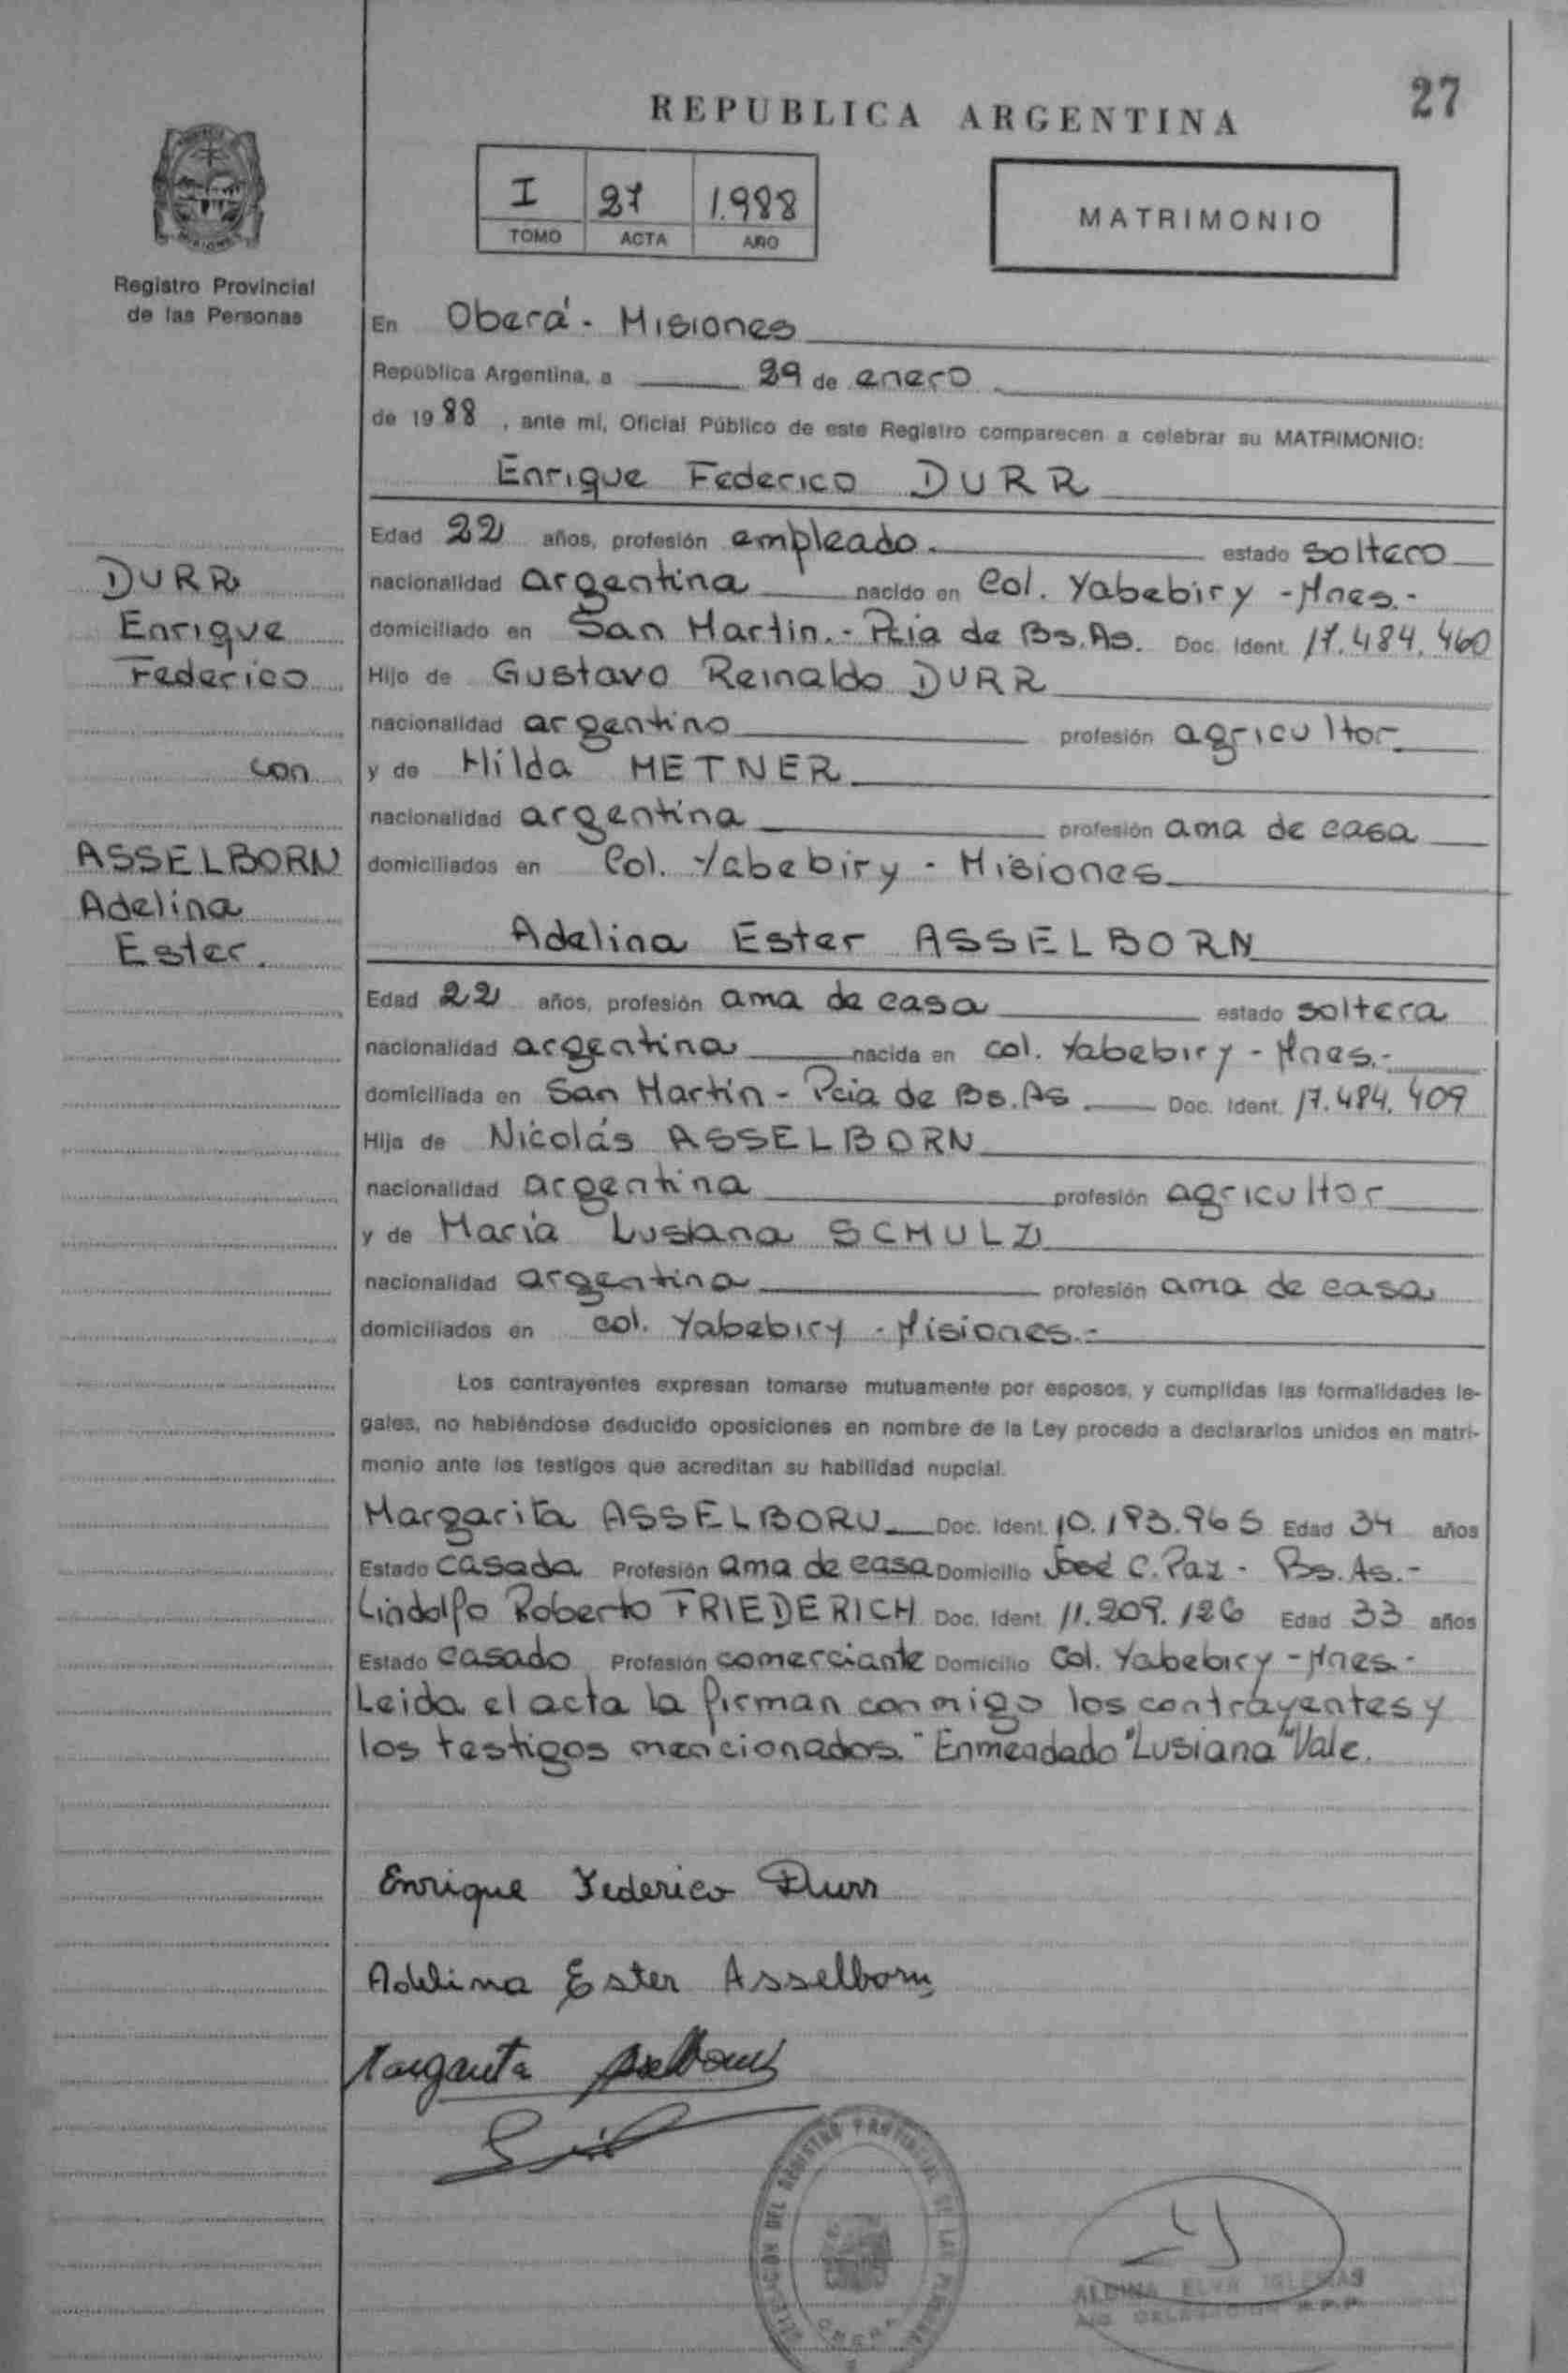 27
REPUBLICA ARGENTINA
I 27 1.988
TOMO ACTA AÑO
MATRIMONIO
Registro Provincial
de las Personas
En Oberá - Misiones
República Argentina, a 29 de enero
de 1988, ante mí, Oficial Público de este Registro comparecen a celebrar su MATRIMONIO:
Enrique Federico DURR
Edad 22 años, profesión empleado. estado soltero
nacionalidad argentina nacido en Col. Yabebiry - Mnes.-
domiciliado en San Martin.- Pcia de Bs.As. Doc. Ident. 17.484.460
Hijo de Gustavo Reinaldo DURR
nacionalidad argentino profesión agricultor
y de Hilda METNER
nacionalidad argentina profesión ama de casa
domiciliados en Col. Yabebiry - Misiones
DURR
Enrique
Federico
con
ASSELBORN
Adelina
Ester.
Adelina Ester ASSELBORN
Edad 22 años, profesión ama de casa estado soltera
nacionalidad argentina nacida en col. Yabebiry - Mnes.-
domiciliada en San Martín - Pcia de Bs.As Doc. Ident. 17.484.409
Hija de Nicolás ASSELBORN
nacionalidad argentina profesión agricultor
y de María Lusiana SCHULZ
nacionalidad argentina profesión ama de casa
domiciliados en col. Yabebiry - Misiones.-
Los contrayentes expresan tomarse mutuamente por esposos, y cumplidas las formalidades le-
gales, no habiéndose deducido oposiciones en nombre de la Ley procedo a declararlos unidos en matri-
monio ante los testigos que acreditan su habilidad nupcial.
Margarita ASSELBORN Doc. Ident. 10.193.965 Edad 34 años
Estado casada Profesión ama de casa Domicilio José C. Paz - Bs.As.-
Lindolfo Roberto FRIEDERICH Doc. Ident. 11.209.126 Edad 33 años
Estado casado Profesión comerciante Domicilio Col. Yabebiry - Mnes.-
Leida el acta la firman conmigo los contrayentes y
los testigos mencionados." Enmendado "Lusiana" Vale.
Enrique Federico Durr
Adelina Ester Asselborn
Margarita Asselborn
DELEGACION DEL REGISTRO PROVINCIAL DE LAS PERSONAS
OBERA
ALBINA ELVA IGLESIAS
A/C DELEGACION R.P.P.